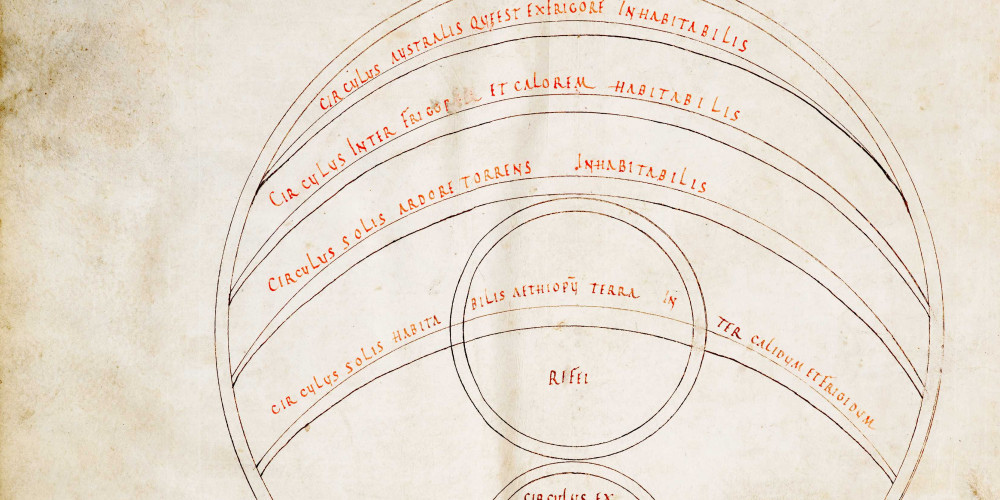 CIRCULUS AUSTRALIS QUE EST EX FRIGORE INHABITABILIS
CIRCULUS INTER ET CALOREM HABITABILIS
CIRCULUS SOLIS ARDORE TORRENS INHABITABILIS
CIRCULUS SOLIS HABITA BILIS AETHIOPŪ TERRA IN TER CALIDUM ET FRIGIDUM
RIFEI
CIRCULUS EX